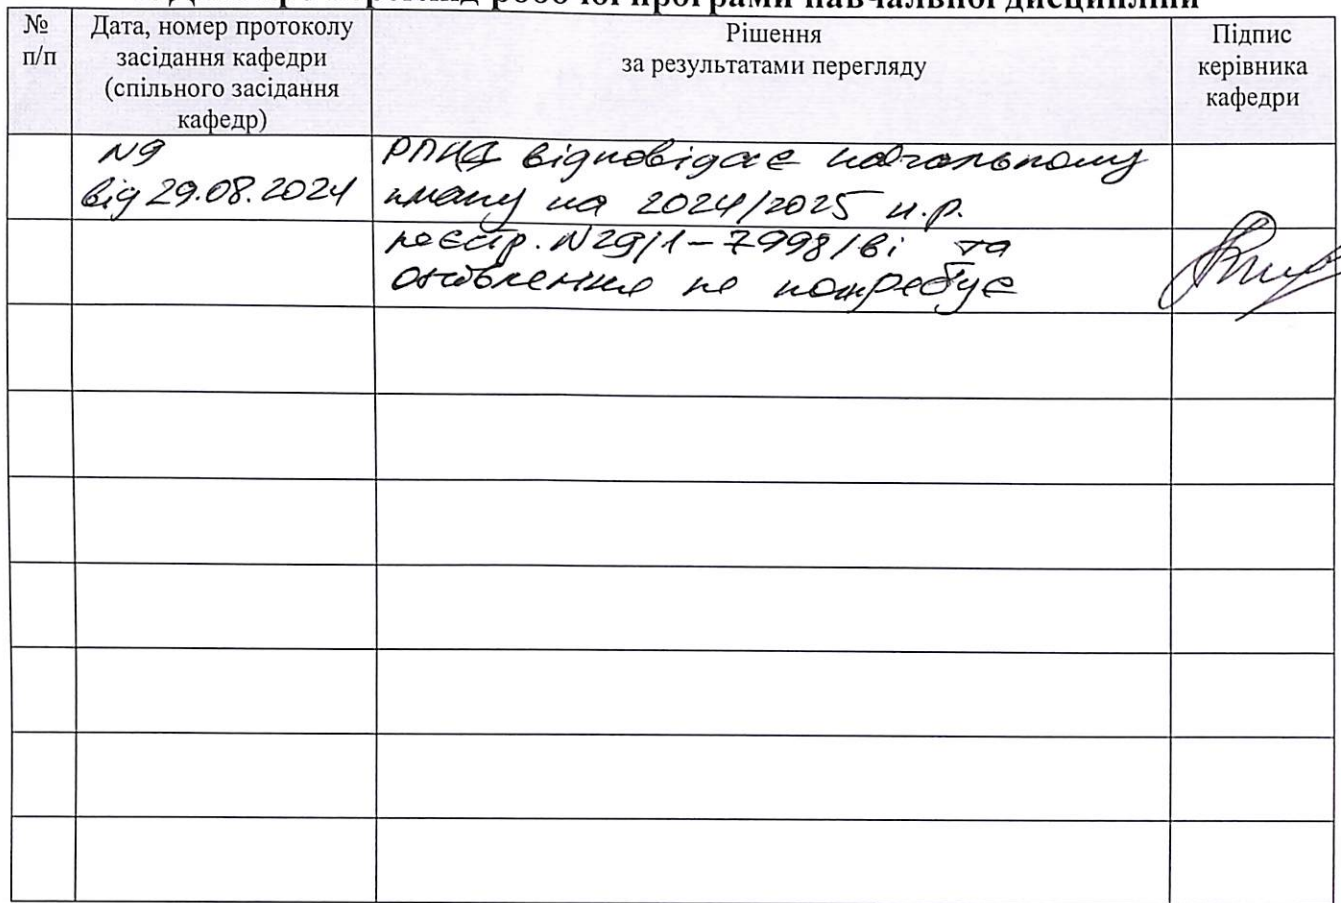 робочої програми навчальної дисципліни
№ п/п
Дата, номер протоколу засідання кафедри (спільного засідання кафедр)
Рішення за результатами перегляду
Підпис керівника кафедри
N9
від 29.08.2024
РПНД відповідає навчальному
плану на 2024/2025 н.р.
реєстр. N29/1-7998/ві та
оновлення не потребує